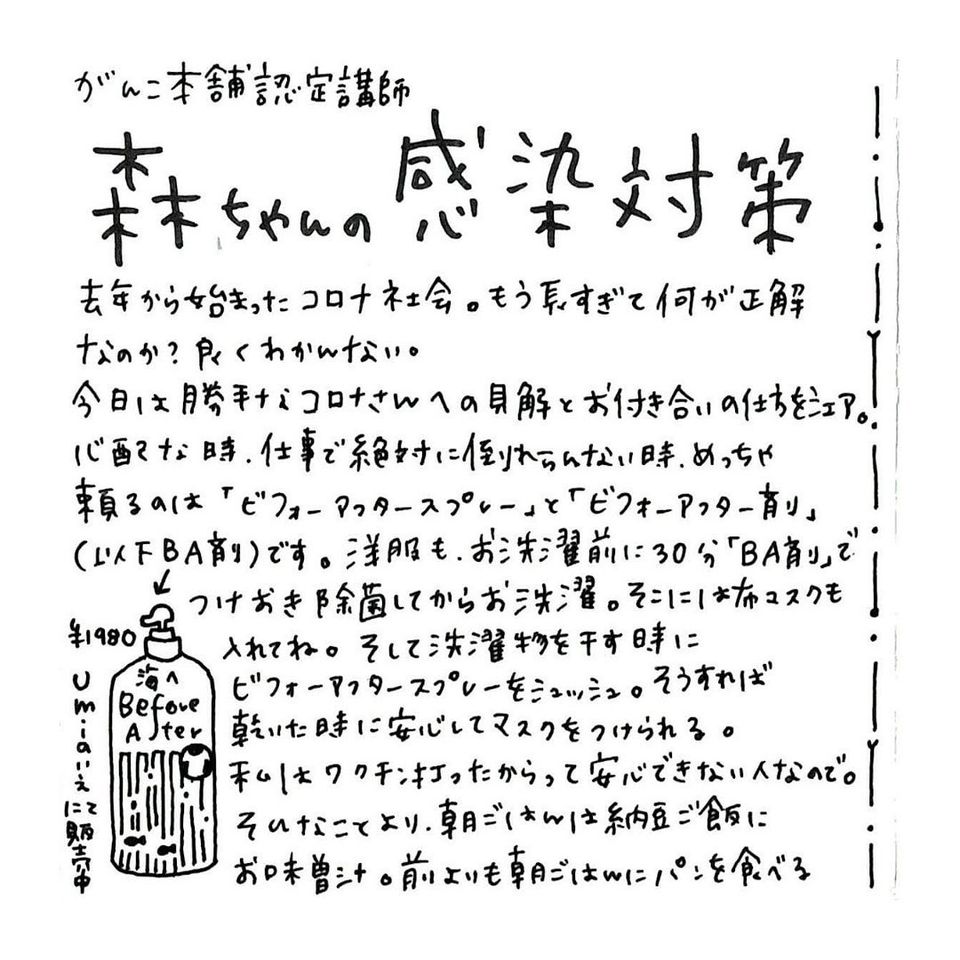 がんこ本舗認定講師
森ちゃんの感染対策
去年から始まったコロナ社会。もう長すぎて何が正解
なのか？良くわかんない。
今日は勝手なコロナさんへの見解とお付き合いの仕方をシェア。
心配な時、仕事で絶対に倒れらんない時、めっちゃ
頼るのは「ビフォーアフタースプレー」と「ビフォーアフター削り」
(以下BA削り)です。洋服も、お洗濯前に30分「BA削り」で
つけおき除菌してからお洗濯。そこには布マスクも
入れてね。そして洗濯物を干す時に
ビフォーアフタースプレーをシュッシュ。そうすれば
乾いた時に安心してマスクをつけられる。
私はワクチン打ったからって安心できない人なので。
そんなことより、朝ごはんは納豆ご飯に
お味噌汁。前よりも朝ごはんにパンを食べる
¥1980
umiのいえにて販売中
海へ
Before
After